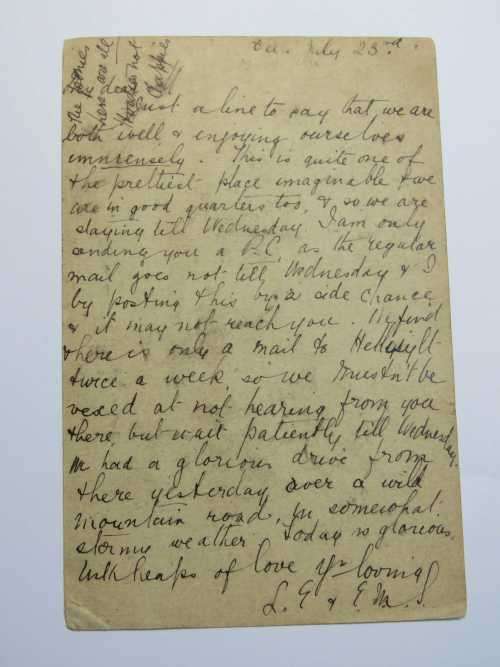 July 23rd.
dear
Just a line to say that we are
both well & enjoying ourselves
immensely. This is quite one of
the prettiest place imaginable & we
are in good quarters too, & so we are
staying till Wednesday. I am only
sending you a P.C. as the regular
mail goes not till Wednesday & I
by posting this by a side chance
& it may not reach you. We find
there is only a mail to
twice a week, so we mustn't be
vexed at not hearing from you
there but wait patiently till Wednesday.
We had a glorious drive from
there yesterday over a wild
mountain road, in somewhat
stormy weather. Today is glorious.
With heaps of love yr loving
L. E & E. M. S.
The
here are ill
not
chappies